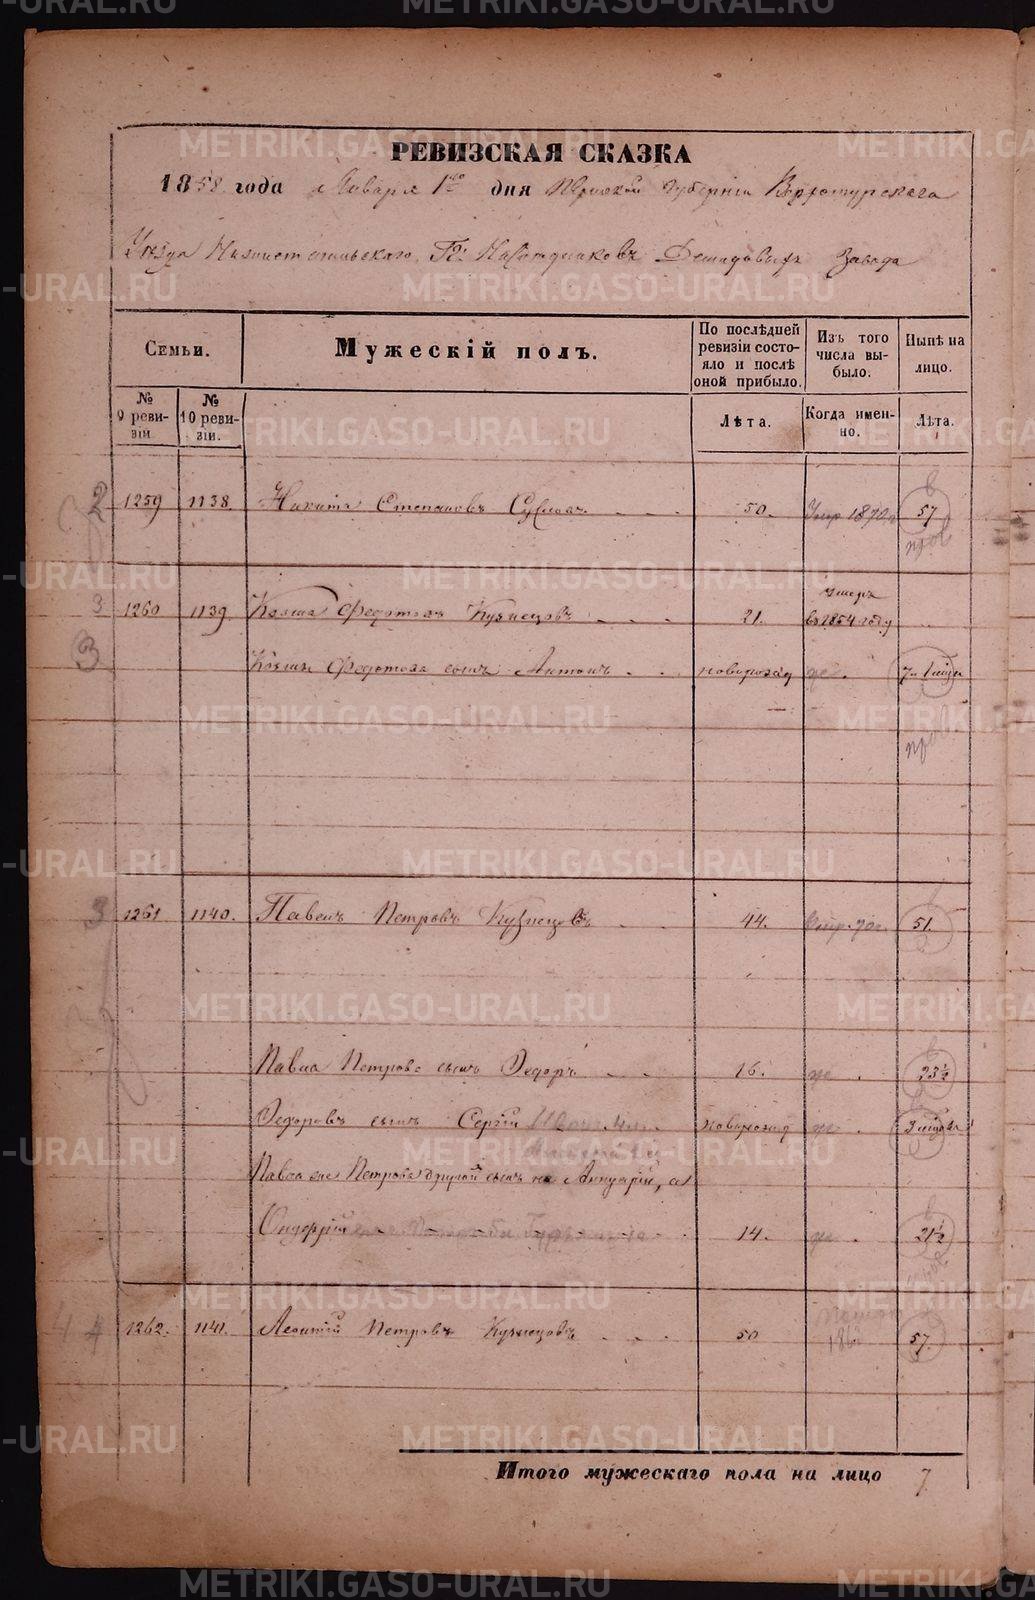 РЕВИЗСКАЯ СКАЗКА
1858 года Января 1го дня Пермской Губернiи Верхотурскаго
Уѣзда Нижнетагильскаго Гг. Наслѣдниковъ Демидовыхъ Завода
Семьи.
Мужескiй полъ.
По послѣдней ревизiи состояло и послѣ оной прибыло.
Изъ того числа выбыло.
Нынѣ на лицо.
№ 9 ревизiи
№ 10 ревизiи.
Лѣта.
Когда именно.
Лѣта.
2 1259 1138. Никита Степановъ 50. Умер 1870 57
3 1260 1139. Козма Федотовъ Кузнецовъ 21. Умеръ въ 1854 году
3 Козмы Федотова сынъ Антонъ новорожд
3 1261 1140. Павелъ Петровъ Кузнецовъ 44. 51.
Павла Петрова сынъ Федоръ 16. 23½
Федоровъ сынъ Сергiй новорожд
Павла же Петрова другой сынъ
14. 21½
4 1262. 1141. Леонтiй Петровъ Кузнецовъ 50 57.
Итого мужескаго пола на лицо 7
METRIKI.GASO-URAL.RU